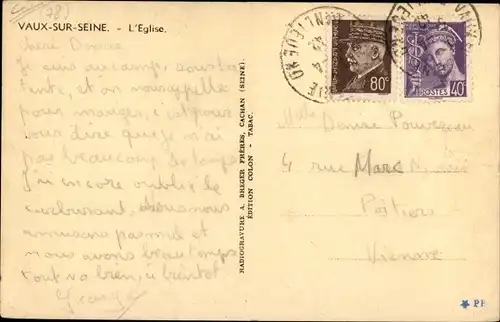 (78)
VAUX-SUR-SEINE. - L'Eglise.
Chère Denise
Je suis au camp, sous la
tente, et on nous appelle
pour manger, c'est pour
vous dire que je n'ai
pas beaucoup de temps
J'ai encore oublié le
carburant, nous nous
amusons pas mal et
nous avons beau temps
tout va bien, à bientôt
RADIOGRAVURE A. BREGER FRÈRES, CACHAN (SEINE).
ÉDITION COLON - TABAC.
80c
POSTES 40c
Melle Denise
4 rue Marc
Poitiers
Vienne